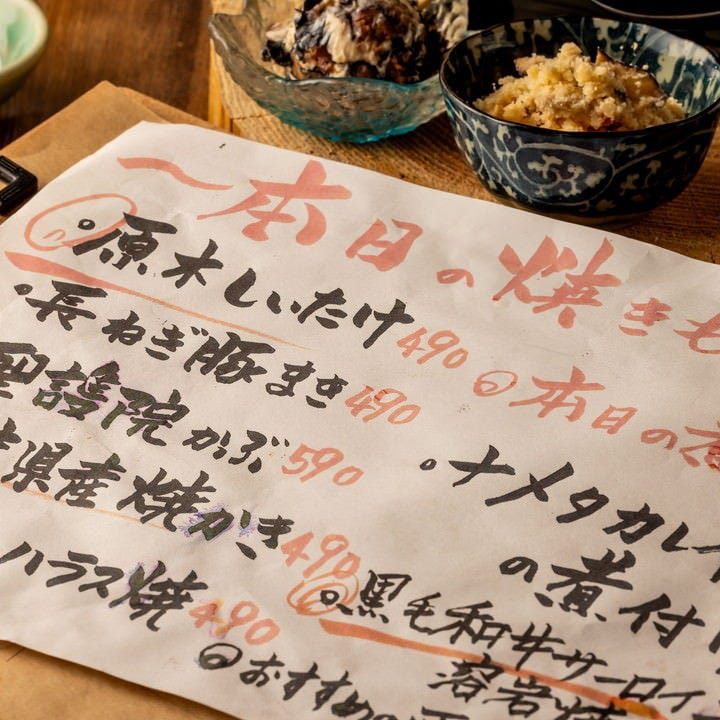 〜本日の焼きも
原木しいたけ 490
長ねぎ豚まき 490
聖護院かぶ 590
県産焼がき 490
ハラス焼 490
本日の煮
ナメタカレイ
の煮付
黒毛和牛サーロイ
溶岩焼
おすすめの